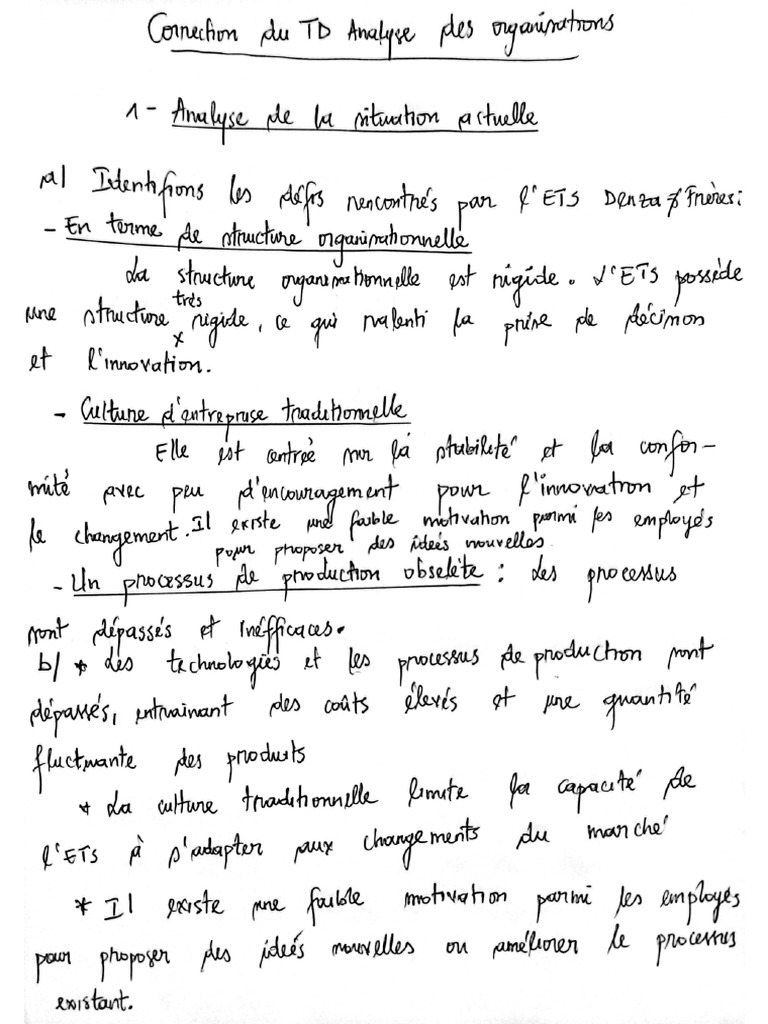 Correction du TD Analyse des organisations
1- Analyse de la situation actuelle
a/ Identifions les défis rencontrés par l'ETS Denza & Frères :
- En terme de structure organisationnelle
La structure organisationnelle est rigide. L'ETS possède
une structure très rigide, ce qui ralenti la prise de décision
et l'innovation.
- Culture d'entreprise traditionnelle
Elle est centrée sur la stabilité et la confor-
mité avec peu d'encouragement pour l'innovation et
le changement. Il existe une faible motivation parmi les employés
pour proposer des idées nouvelles
- Un processus de production obselète : Les processus
sont dépassés et inéfficaces.
b/ * Les technologies et les processus de production sont
dépassés, entrainant des coûts élevés et une quantité
fluctuante des produits
* La culture traditionnelle limite la capacité de
l'ETS à s'adapter aux changements du marché
* Il existe une faible motivation parmi les employés
pour proposer des idées nouvelles ou améliorer le processus
existant.